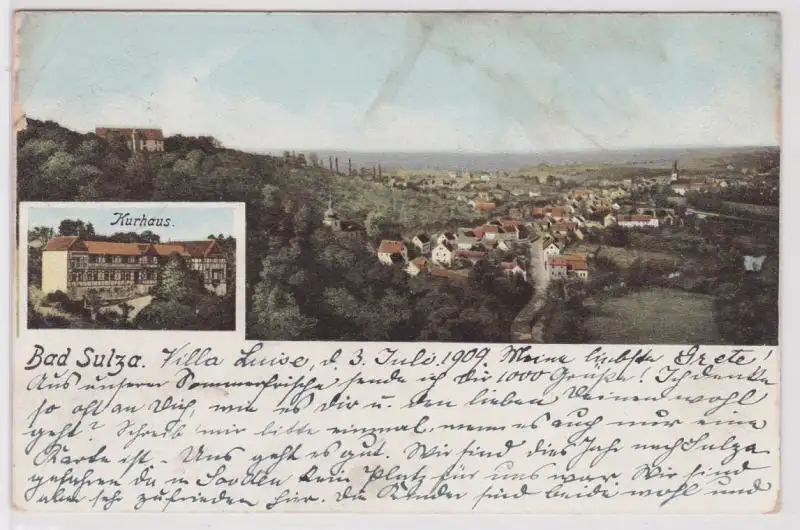 Kurhaus.
Bad Sulza. Villa Luise, d. 3. Juli 1909. Meine liebste Grete!
Aus unserer Sommerfrische sende ich dir 1000 Grüße! Ich denke
so oft an Dich, wie es dir u. den lieben Deinen wohl
geht? Schreib' mir bitte einmal, wenn es auch nur eine
Karte ist. Uns geht es gut. Wir sind dies Jahr nach Sulza
gefahren da in Sooden kein Platz für uns war. Wir sind
aber sehr zufrieden hier. Die Kinder sind beide wohl und